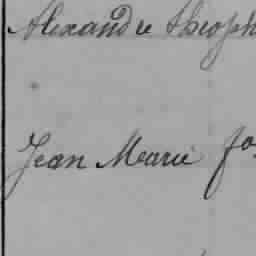 Alexandre théoph
Jean Marie fo